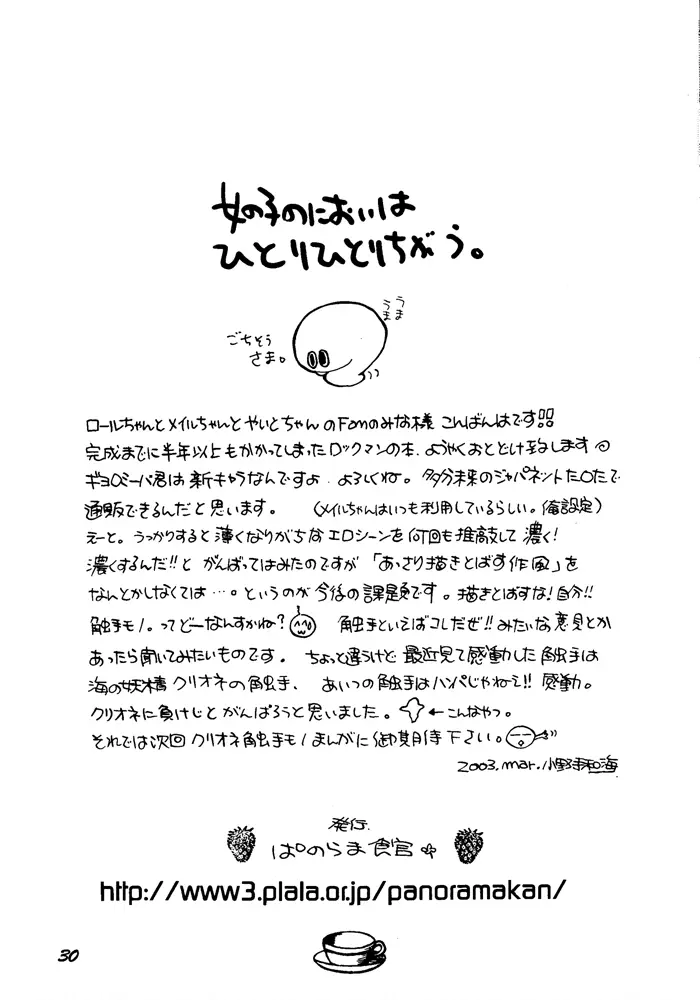 女の子のにおいは
ひとりひとりちがう。
うま
うま
ごちそう
さま。
ロールちゃんとメイルちゃんとやいとちゃんのFanのみな様 こんばんはです!!
完成までに半年以上もかかってしまったロックマンの本、ようやくおとどけ致します
君は新キャラなんですよ よろしくね。多分未来のジャパネットた〇たで
通販できるんだと思います。 (メイルちゃんはいつも利用しているらしい。俺設定)
えーと。うっかりすると薄くなりがちなエロシーンを何回も推敲して濃く!
濃くするんだ!!と がんばってはみたのですが 「あっさり描きとばす作風」を
なんとかしなくては…。というのが今後の課題です。描きとばすな!自分!!
触手モノ。ってどーなんすかね? 触手といえばコレだぜ!!みたいな意見とか
あったら聞いてみたいものです。 ちょっと違うけど最近見て感動した触手は
海の妖精クリオネの触手、 あいつの触手はハンパじゃねえ!!感動。
クリオネに負けじとがんばろうと思いました。 ←こんなやつ。
それでは次回クリオネ触手モノまんがに御期待下さい。
2003.mar.小野寺和海
発行.
ぱのらま食官
http://www3.plala.or.jp/panoramakan/
30